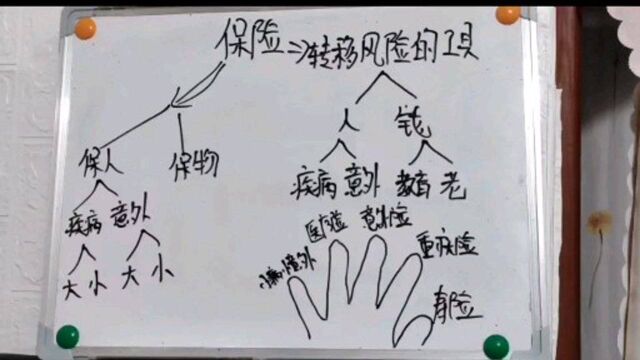 保险⇒转移风险的工具
保人 保物
疾病 意外
大 小 大 小
人 钱
疾病 意外 教育 老
小病小意外
医疗险
意外险
重疾险
寿险